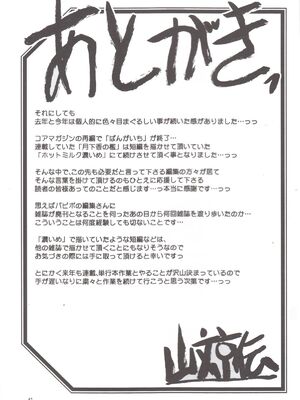 あとがきっ
それにしても
去年と今年は個人的に色々目まぐるしい事が続いた感がありました…っっ
コアマガジンの再編で「ばんがいち」が終了…
連載していた「月下香の檻」は短編を描かせて頂いていた
「ホットミルク濃いめ」にて続けさせて頂く事となりました…
そんな中で、この先も必要だと言って下さる編集さんや
そんな言葉を掛けて頂けるのもひとえに応援して下さる
読者の皆様あってのことだと感じます…っっ本当に感謝です…っっ
思えばパピポの編集さんに
雑誌が廃刊となることを伺ったあの日から何回雑誌を渡り歩いたのか…
こういうことは何度経験しても切ないです…っっ
「濃いめ」で描いていたような短編などは、
他の雑誌で描かせて頂くことにもなりそうなので
お気づきの際には手に取って頂けると幸いですっっ
とにかく来年も連載、単行本作業とやることが沢山決まっているので
手が遅いなりに粛々と作業を続けて行こうと思う次第です…っっ
山文京伝